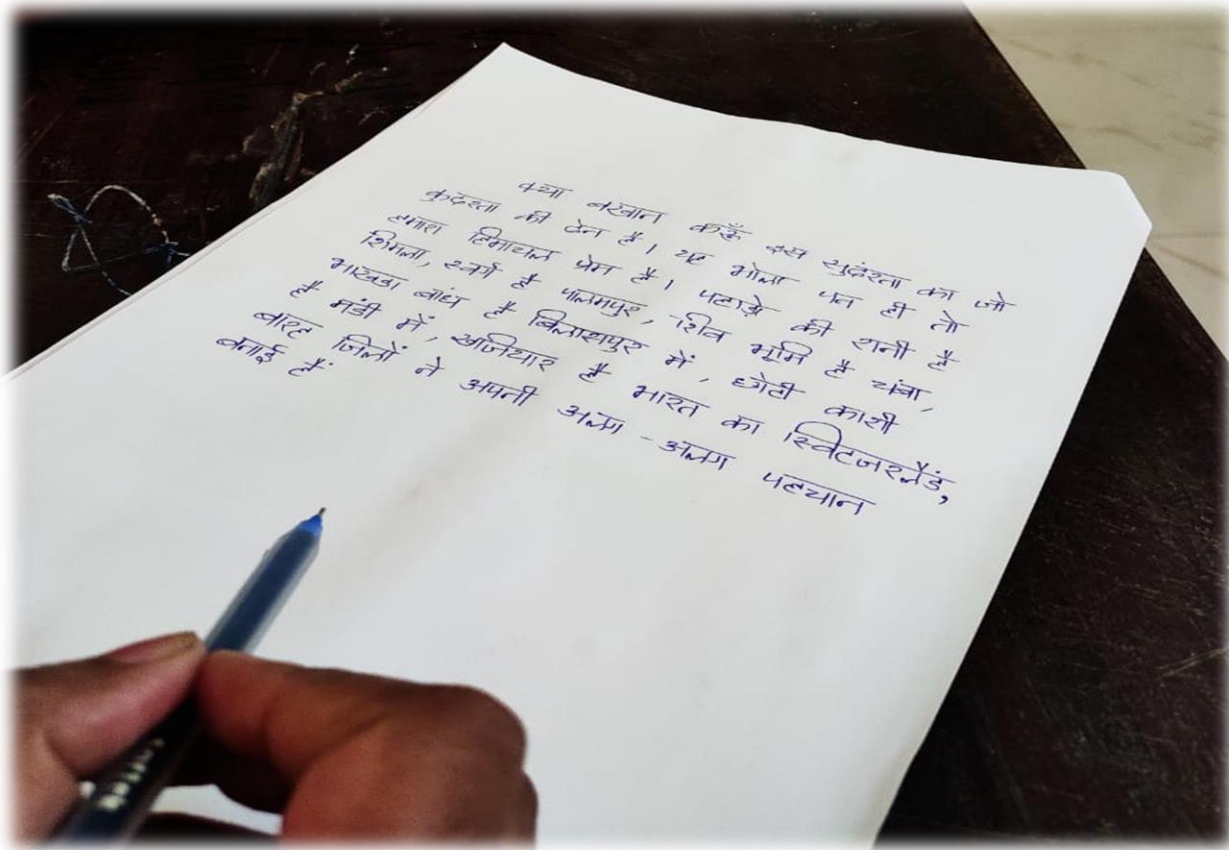 क्या बखान करूँ इस सुदंरता का जो
कुदरता की देन है। यह भोला पन ही तो
हमारा हिमाचल प्रेम है। पहाड़ो की रानी है
शिमला, स्वर्ग है पालमपुर, शिव भूमि है चंबा,
भाखडा बांध है बिलासपुर में, छोटी काशी
है मंडी में, खजियार है भारत का स्विटजरलैंड,
बारह जिलों ने अपनी अलग - अलग पहचान
बनाई हैं